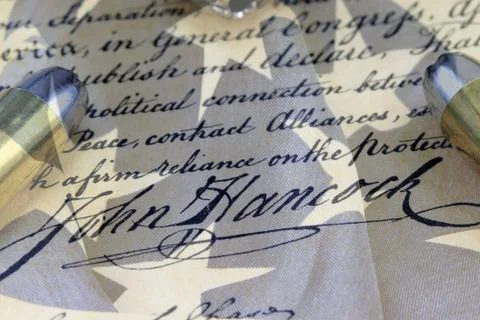 our Separation
erica, in General Congress, A
publish and declare, That
political connection betwe
Peace, contract Alliances, es
h a firm reliance on the Protect
John Hancock
Chase